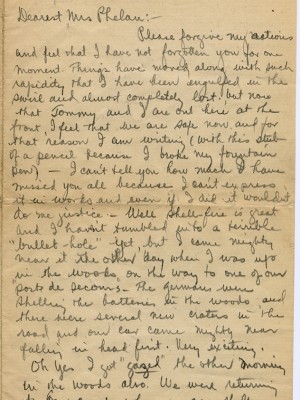 Dearest Mrs Phelan:-
Please forgive my actions
and feel that I have not forgotten you for one
moment. Things have moved along with such
rapidity that I have been engulfed in the
swirl and almost completely lost. but now
that Tommy and I are out here at the
front I feel that we are safe now and for
that reason I am writing (with this stub
of a pencil because I broke my fountain
pen). - I can't tell you how much I have
missed you all because I can't express
it in words and even if I did it wouldn't
do me justice - Well shell-fire is great
and I havn't tumbled into a terrible
"bullet-hole" yet, but I came mighty
near it the other day when I was up
in the woods, on the way to one of our
posts de secours. The germans were
shelling the batteries in the woods and
there were several new craters in the
road and our car came mighty near
falling in head first. Very exciting.
Oh yes I got "gazed" the other morning
in the woods also. We were returning